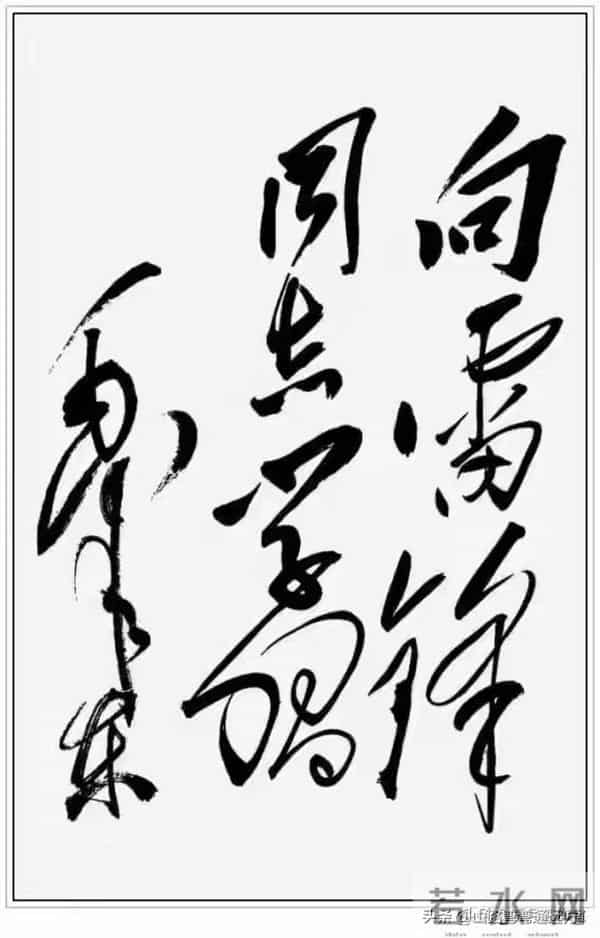 向雷锋
同志学习
毛泽东
若水网